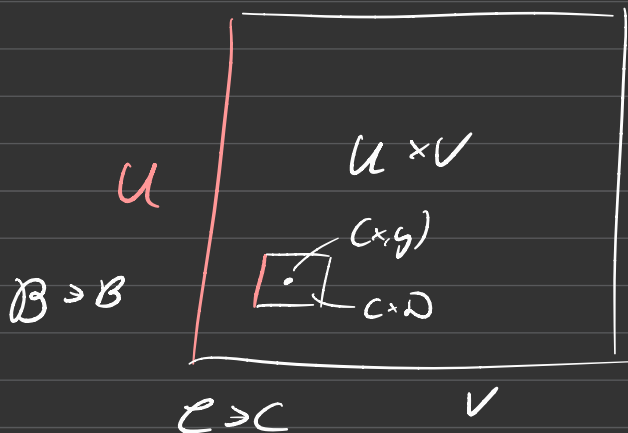 U × V
U
(x,y)
B ∋ B
C × D
C ∋ C
V